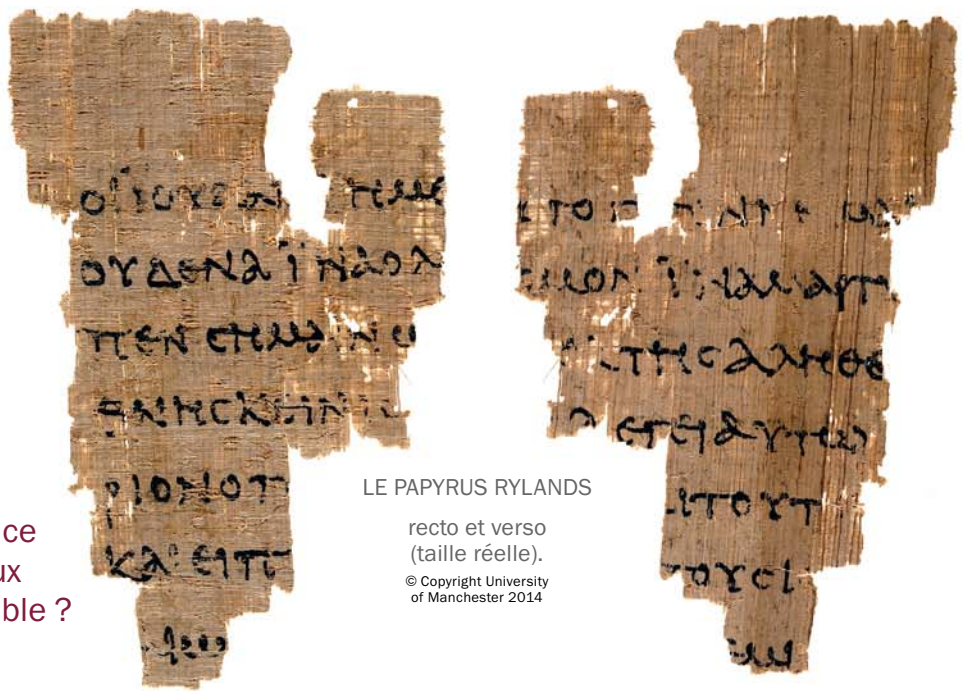 ΟΙΪΟΥΔΑΙ ΗΜΕ
ΟΥΔΕΝΑΪΝΑΟΛ
ΠΕΝϹΗΜΑΙΝΩ
ΘΝΗϹΚΕΙΝΙϹ
ΡΙΟΝΟΠ
ΚΑΙΕΙΠ
ΤΟΥΤ
ϹΜΟΝΪΝΑΜΑΡΤ
ΤΗϹΑΛΗΘΕ
ΛΕΓΕΙΑΥΤΩ
ΤΟΥΤ
ΤΟΥϹΙ
LE PAPYRUS RYLANDS
recto et verso
(taille réelle).
© Copyright University
of Manchester 2014
ce
ux
ble ?